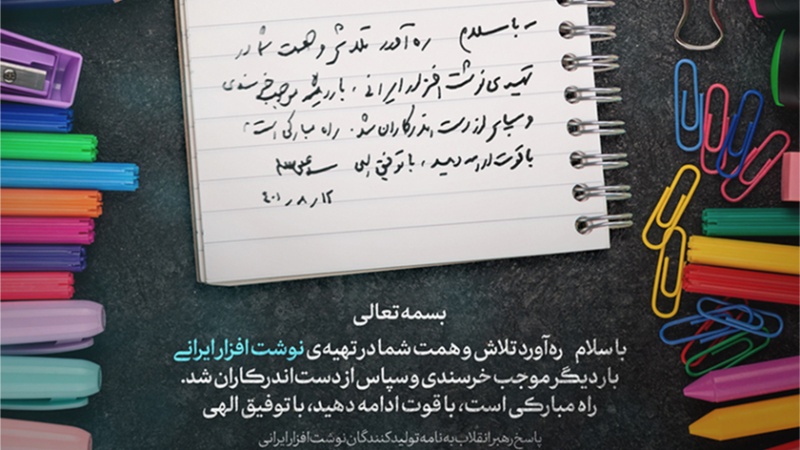 - با سلام ره‌آورد تلاش و همت شما در
تهیه‌ی نوشت افزار ایرانی، بار دیگر موجب خرسندی
و سپاس از دست اندرکاران شد. راه مبارکی است،
با قوت ادامه دهید، با توفیق الهی
۱۲ ر ۸ ر ۴۰۱
بسمه تعالی
با سلام ره‌آورد تلاش و همت شما در تهیه‌ی نوشت افزار ایرانی
بار دیگر موجب خرسندی و سپاس از دست‌اندرکاران شد.
راه مبارکی است، با قوت ادامه دهید، با توفیق الهی
پاسخ رهبر انقلاب به نامه تولیدکنندگان نوشت افزار ایرانی